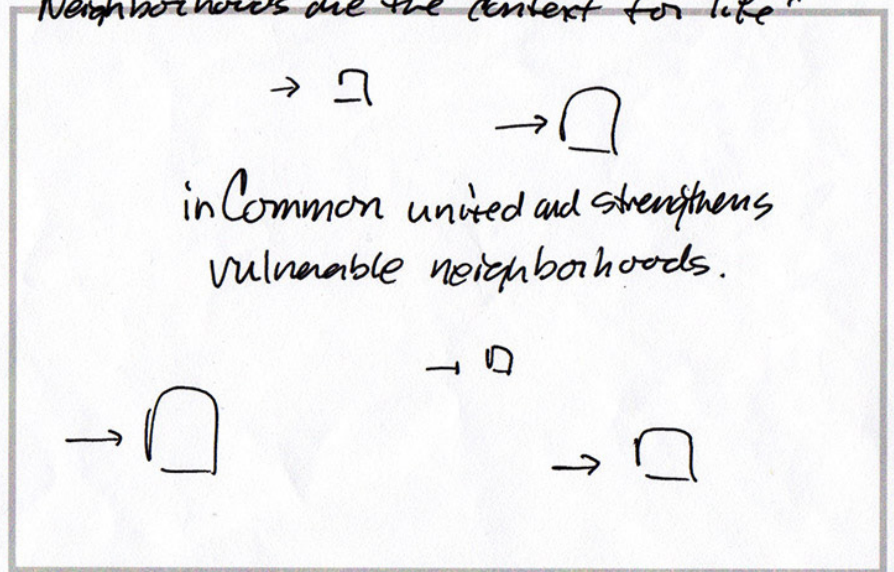 Neighborhoods are the context for life"
inCommon united and strengthens
vulnerable neighborhoods.